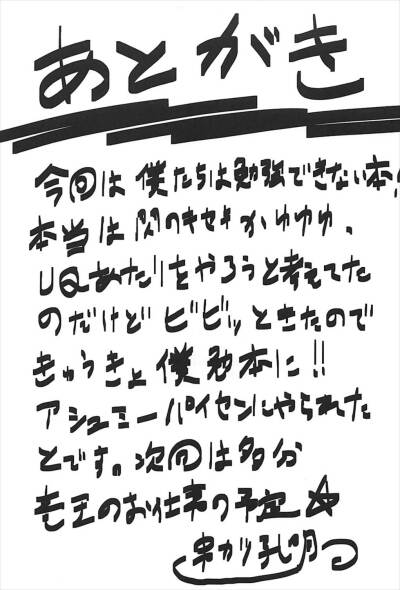 あとがき
今回は僕たちは勉強できない本！
本当は閃のキセキかゆゆゆ、
UQあたりをやろうと考えてた
のだけどビビッときたので
きゅうきょ僕勉本に!!
アシュミーパイセンにやられた
とです。次回は多分
竜王のお仕事の予定☆
串カツ孔明